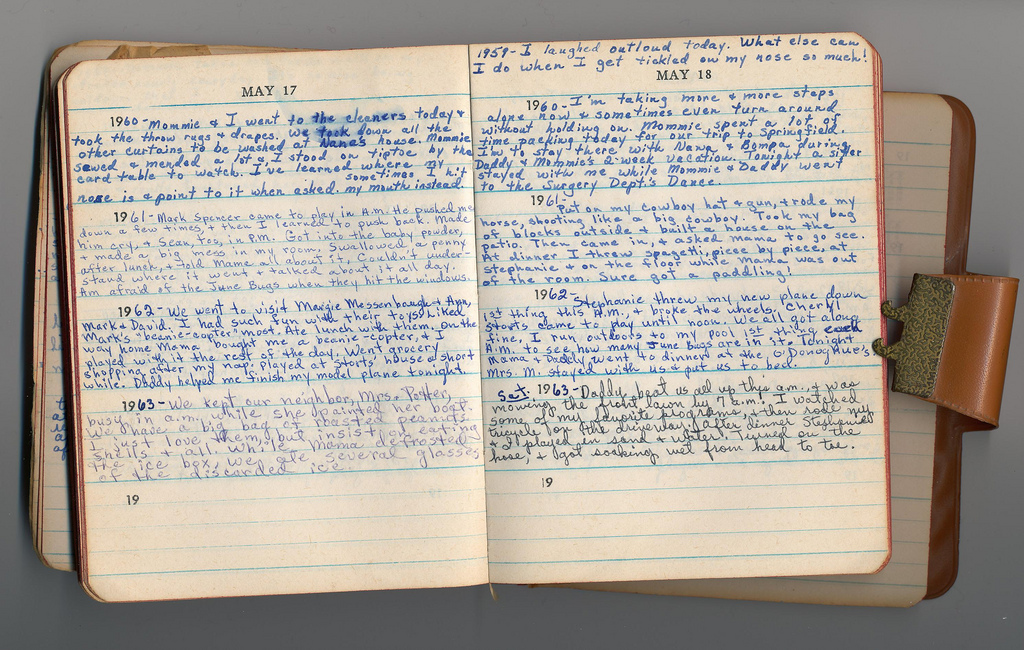 MAY 17
1960- Mommie & I went to the cleaners today &
took the throw rugs & drapes. We took down all the
other curtains to be washed at Nana's house. Mommie
sewed & mended a lot & I stood on tiptoe by the
card table to watch. I've learned where my
nose is & point to it when asked. sometimes I hit
my mouth instead.
1961- Mark Spencer came to play in A.M. He pushed me
down a few times, & then I learned to push back. Made
him cry, & Sean, too, in P.M. Got into the baby powder,
& made a big mess in my room. Swallowed a penny
after lunch, & told Mama all about it. Couldn't under-
stand where it went & talked about it all day.
Am afraid of the June Bugs when they hit the windows.
1962- We went to visit Margie Messenbaugh & Ann,
Mark & David. I had such fun with their toys. Liked
Mark's "beanie-copter" most. Ate lunch with them, on the
way home Mama bought me a beanie-copter, & I
played with it the rest of the day. Went grocery
shopping after my nap. Played at Storts' house a short
while. Daddy helped me finish my model plane tonight.
1963- We kept our neighbor, Mrs. Potter,
busy in a.m. while she painted her boat.
We have a big bag of roasted peanuts.
I just love them, but insist on eating
shells & all. While mama defrosted
the ice box, we ate several glasses
of the discarded ice.
19
1959- I laughed outloud today. What else can
I do when I get tickled on my nose so much!
MAY 18
1960- I'm taking more & more steps
alone now & sometimes even turn around
without holding on. Mommie spent a lot of
time packing today for our trip to Springfield.
I'm to stay there with Nana & Bompa during
Daddy & Mommie's 2-week vacation. Tonight a sitter
stayed with me while Mommie & Daddy went
to the Surgery Dept's Dance.
1961- Put on my cowboy hat & gun, & rode my
horse, shooting like a big cowboy. Took my bag
of blocks outside & built a house on the
patio. Then came in, & asked mama to go see.
At dinner I threw spagetti, piece by piece, at
Stephanie & on the floor while Mama was out
of the room. Sure got a paddling!
1962- Stephanie threw my new plane down
1st thing this A.M., & broke the wheels. Cheryl
Storts came to play until noon. We all got along
fine, I run outdoors to my pool 1st thing each
A.M. to see how many June bugs are in it. Tonight
Mama & Daddy went to dinner at the O'Donoghue's
Mrs. M. stayed with us & put us to bed.
Sat. 1963- Daddy beat us all up this a.m., & was
mowing the front lawn by 7 a.m.! I watched
some of my favorite programs, & then rode my
tricycle (on the driveway). After dinner Stephanie
& I played in sand & water. Turned on the
hose, & got soaking wet from head to toe.
19